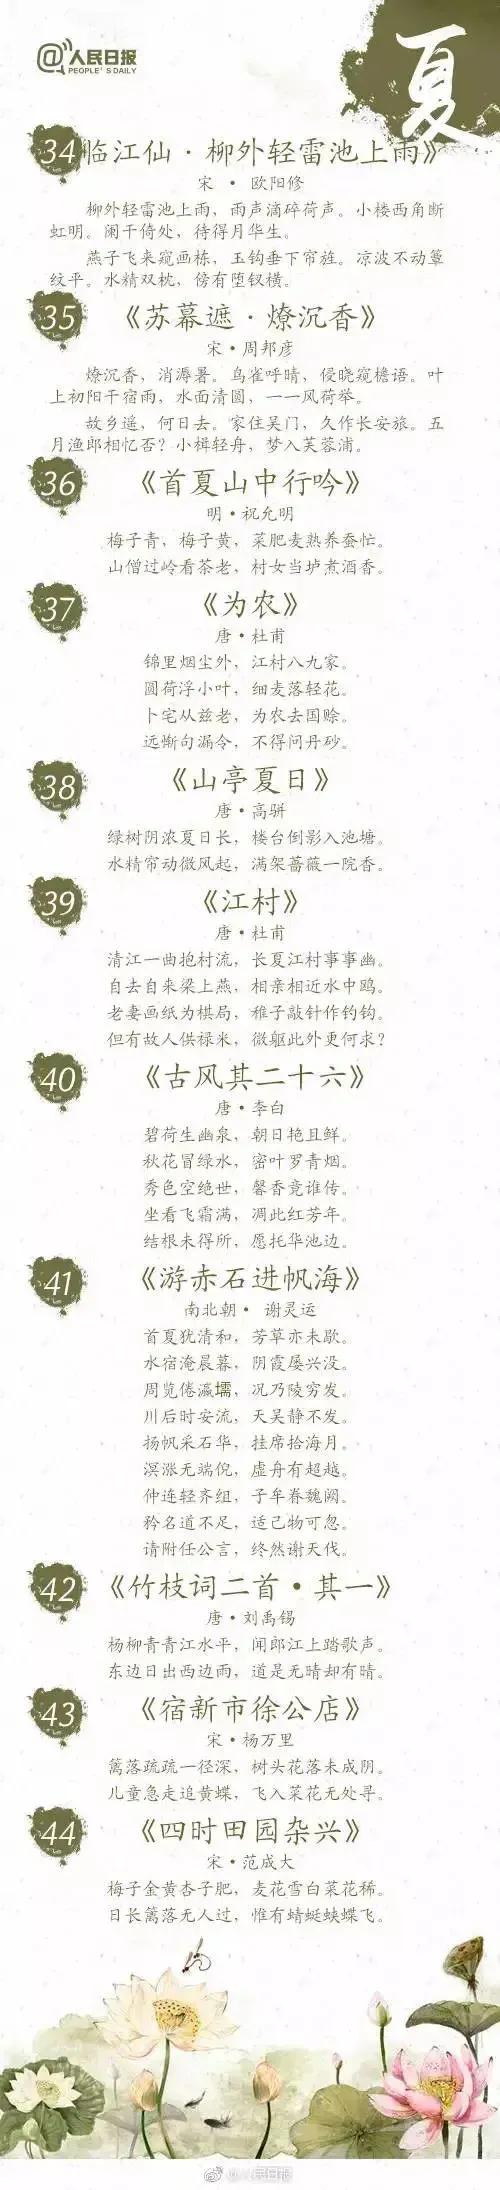 @人民日报
PEOPLE'S DAILY
夏
34
临江仙·柳外轻雷池上雨》
宋 · 欧阳修
柳外轻雷池上雨，雨声滴碎荷声。小楼西角断
虹明。阑干倚处，待得月华生。
燕子飞来窥画栋，玉钩垂下帘旌。凉波不动簟
纹平。水精双枕，傍有堕钗横。
35
《苏幕遮·燎沉香》
宋·周邦彦
燎沉香，消溽暑。鸟雀呼晴，侵晓窥檐语。叶
上初阳干宿雨，水面清圆，一一风荷举。
故乡遥，何日去。家住吴门，久作长安旅。五
月渔郎相忆否？小楫轻舟，梦入芙蓉浦。
36
《首夏山中行吟》
明·祝允明
梅子青，梅子黄，菜肥麦熟养蚕忙。
山僧过岭看茶老，村女当垆煮酒香。
37
《为农》
唐·杜甫
锦里烟尘外，江村八九家。
圆荷浮小叶，细麦落轻花。
卜宅从兹老，为农去国赊。
远惭句漏令，不得问丹砂。
38
《山亭夏日》
唐·高骈
绿树阴浓夏日长，楼台倒影入池塘。
水精帘动微风起，满架蔷薇一院香。
39
《江村》
唐·杜甫
清江一曲抱村流，长夏江村事事幽。
自去自来梁上燕，相亲相近水中鸥。
老妻画纸为棋局，稚子敲针作钓钩。
但有故人供禄米，微躯此外更何求？
40
《古风其二十六》
唐·李白
碧荷生幽泉，朝日艳且鲜。
秋花冒绿水，密叶罗青烟。
秀色空绝世，馨香竟谁传。
坐看飞霜满，凋此红芳年。
结根未得所，愿托华池边。
41
《游赤石进帆海》
南北朝· 谢灵运
首夏犹清和，芳草亦未歇。
水宿淹晨暮，阴霞屡兴没。
周览倦瀛壖，况乃陵穷发。
川后时安流，天吴静不发。
扬帆采石华，挂席拾海月。
溟涨无端倪，虚舟有超越。
仲连轻齐组，子牟眷魏阙。
矜名道不足，适己物可忽。
请附任公言，终然谢天伐。
42
《竹枝词二首·其一》
唐·刘禹锡
杨柳青青江水平，闻郎江上踏歌声。
东边日出西边雨，道是无晴却有晴。
43
《宿新市徐公店》
宋·杨万里
篱落疏疏一径深，树头花落未成阴。
儿童急走追黄蝶，飞入菜花无处寻。
44
《四时田园杂兴》
宋·范成大
梅子金黄杏子肥，麦花雪白菜花稀。
日长篱落无人过，惟有蜻蜓蛱蝶飞。
@人民日报